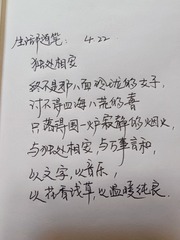 生活随笔: 4.22
独处相安
终不是那八面玲珑的女子
讨不得四海八荒的喜
只落得围一炉寂静的烟火
与独处相安,与万事言和
以文字,以音乐,
以花香浅草,以温暖纯良.